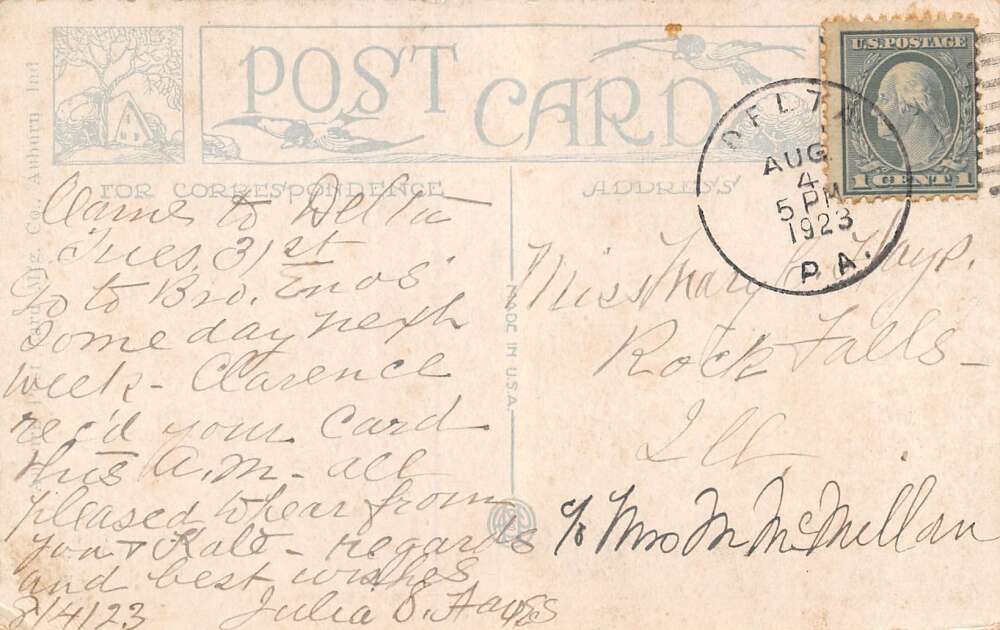 POST CARD
U.S. POSTAGE
1 CENT 1
DELTA
AUG
4
5 PM
1923
PA.
FOR CORRESPONDENCE
ADDRESS
Came to Delta
Tues, 31st
Go to Bro. Enos'
Some day next
week - Clarence
rec'd your Card
this A.M - all
pleased to hear from
you & Kate - regards
and best wishes
8/4/23 Julia S. Hays
MADE IN U.S.A.
Miss Mary Hays.
Rock Falls -
Ill
c/o Mrs M McMillan
Mfg. Co., Auburn Ind